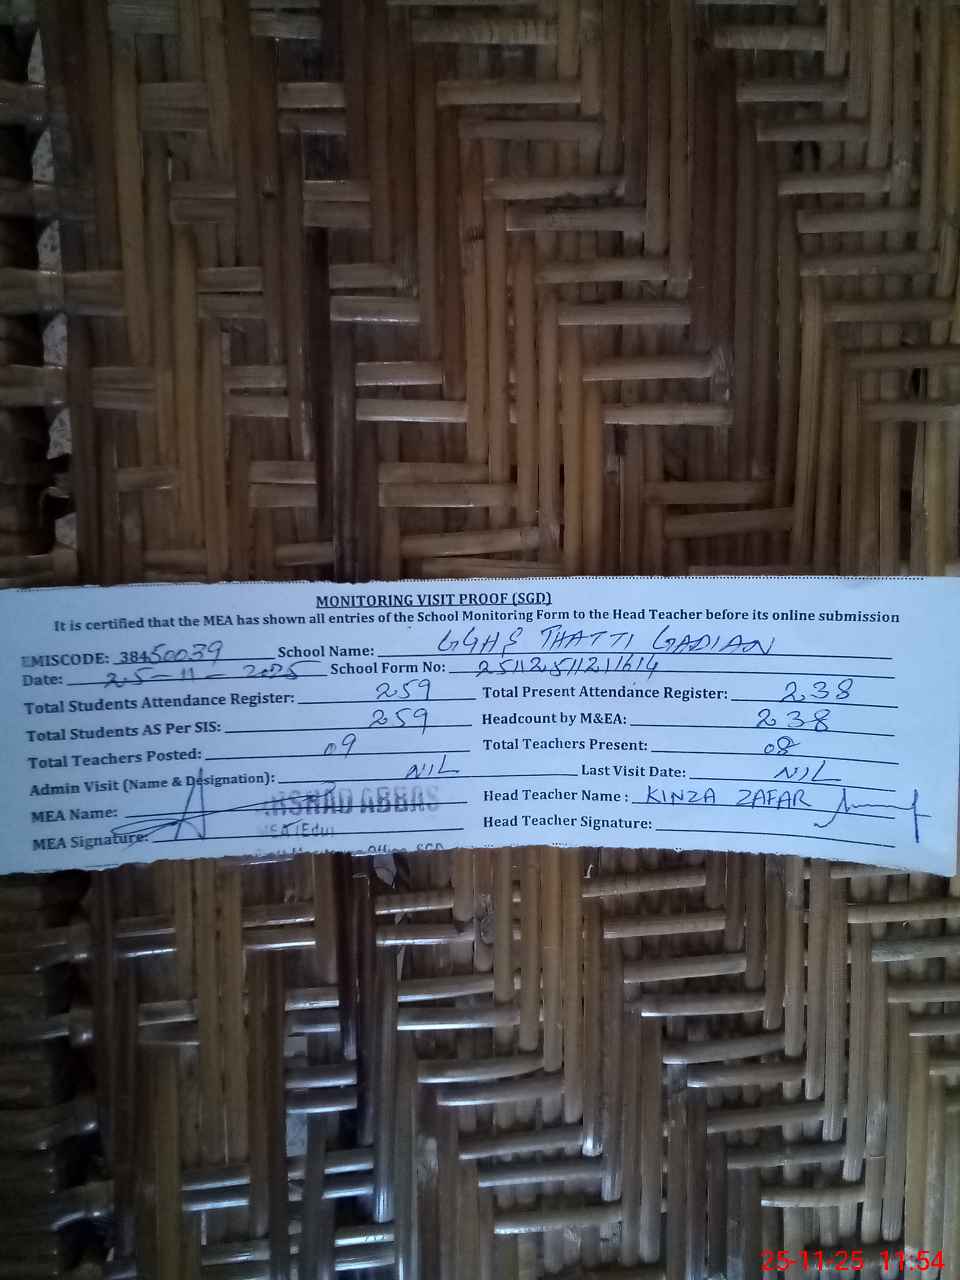 MONITORING VISIT PROOF (SGD)
It is certified that the MEA has shown all entries of the School Monitoring Form to the Head Teacher before its online submission
EMISCODE: 38450039 School Name: GGHS THATTI GADIAN
Date: 25-11-2025 School Form No:
Total Students Attendance Register: 259 Total Present Attendance Register: 238
Total Students AS Per SIS: 259 Headcount by M&EA: 238
Total Teachers Posted: 09 Total Teachers Present: 08
Admin Visit (Name & Designation): NIL Last Visit Date: NIL
MEA Name: ARSHAD ABBAS Head Teacher Name : KINZA ZAFAR
MEA Signature: MEA (Edu) Head Teacher Signature:
25-11-25 11:54